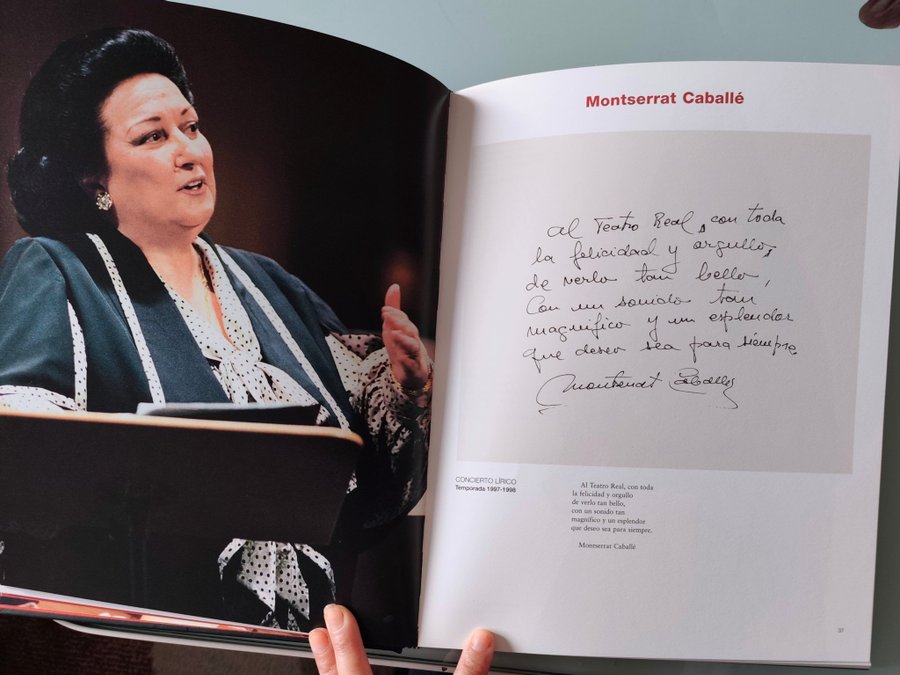 Montserrat Caballé
al Teatro Real, con toda
la felicidad y orgullo,
de verlo tan bello,
Con un sonido tan
magnífico y un esplendor
que deseo sea para siempre
Montserrat Caballé
CONCIERTO LÍRICO
Temporada 1997-1998
Al Teatro Real, con toda
la felicidad y orgullo
de verlo tan bello,
con un sonido tan
magnífico y un esplendor
que deseo sea para siempre.
Montserrat Caballé
37